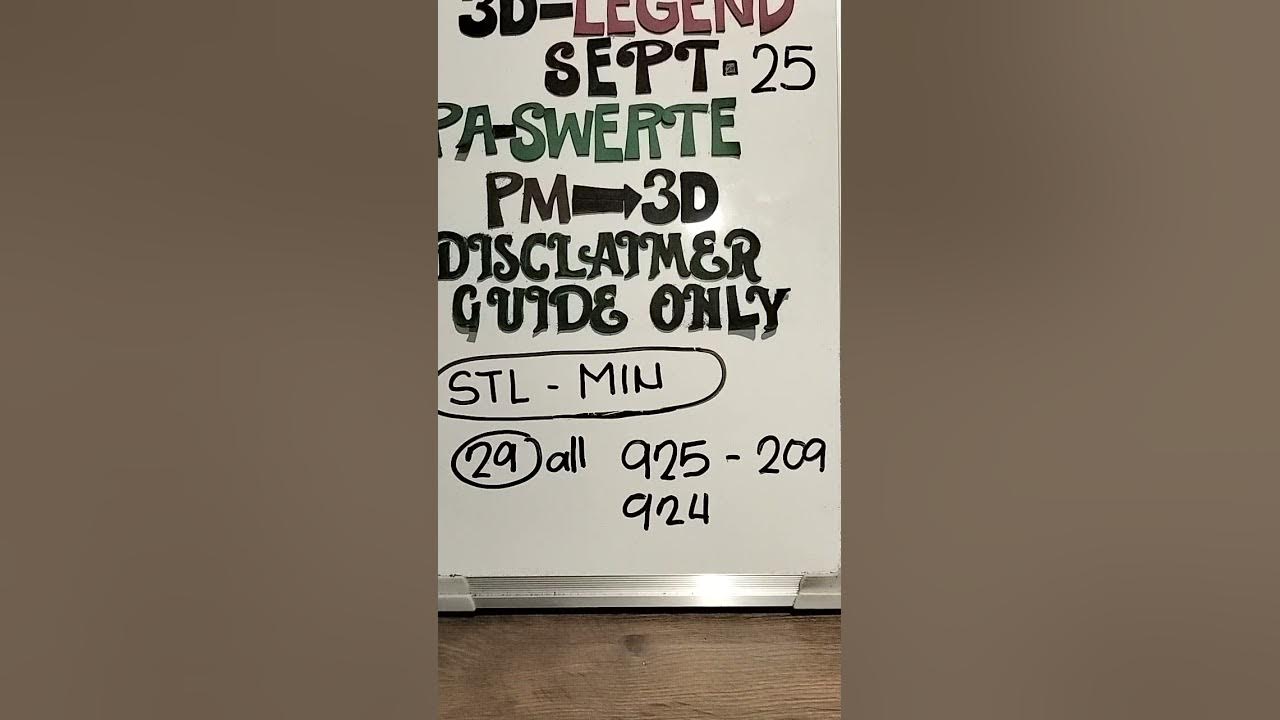 3D-LEGEND
SEPT. 25
PA-SWERTE
PM➡3D
DISCLAIMER
GUIDE ONLY
STL - MIN
29 all 925 - 209
924